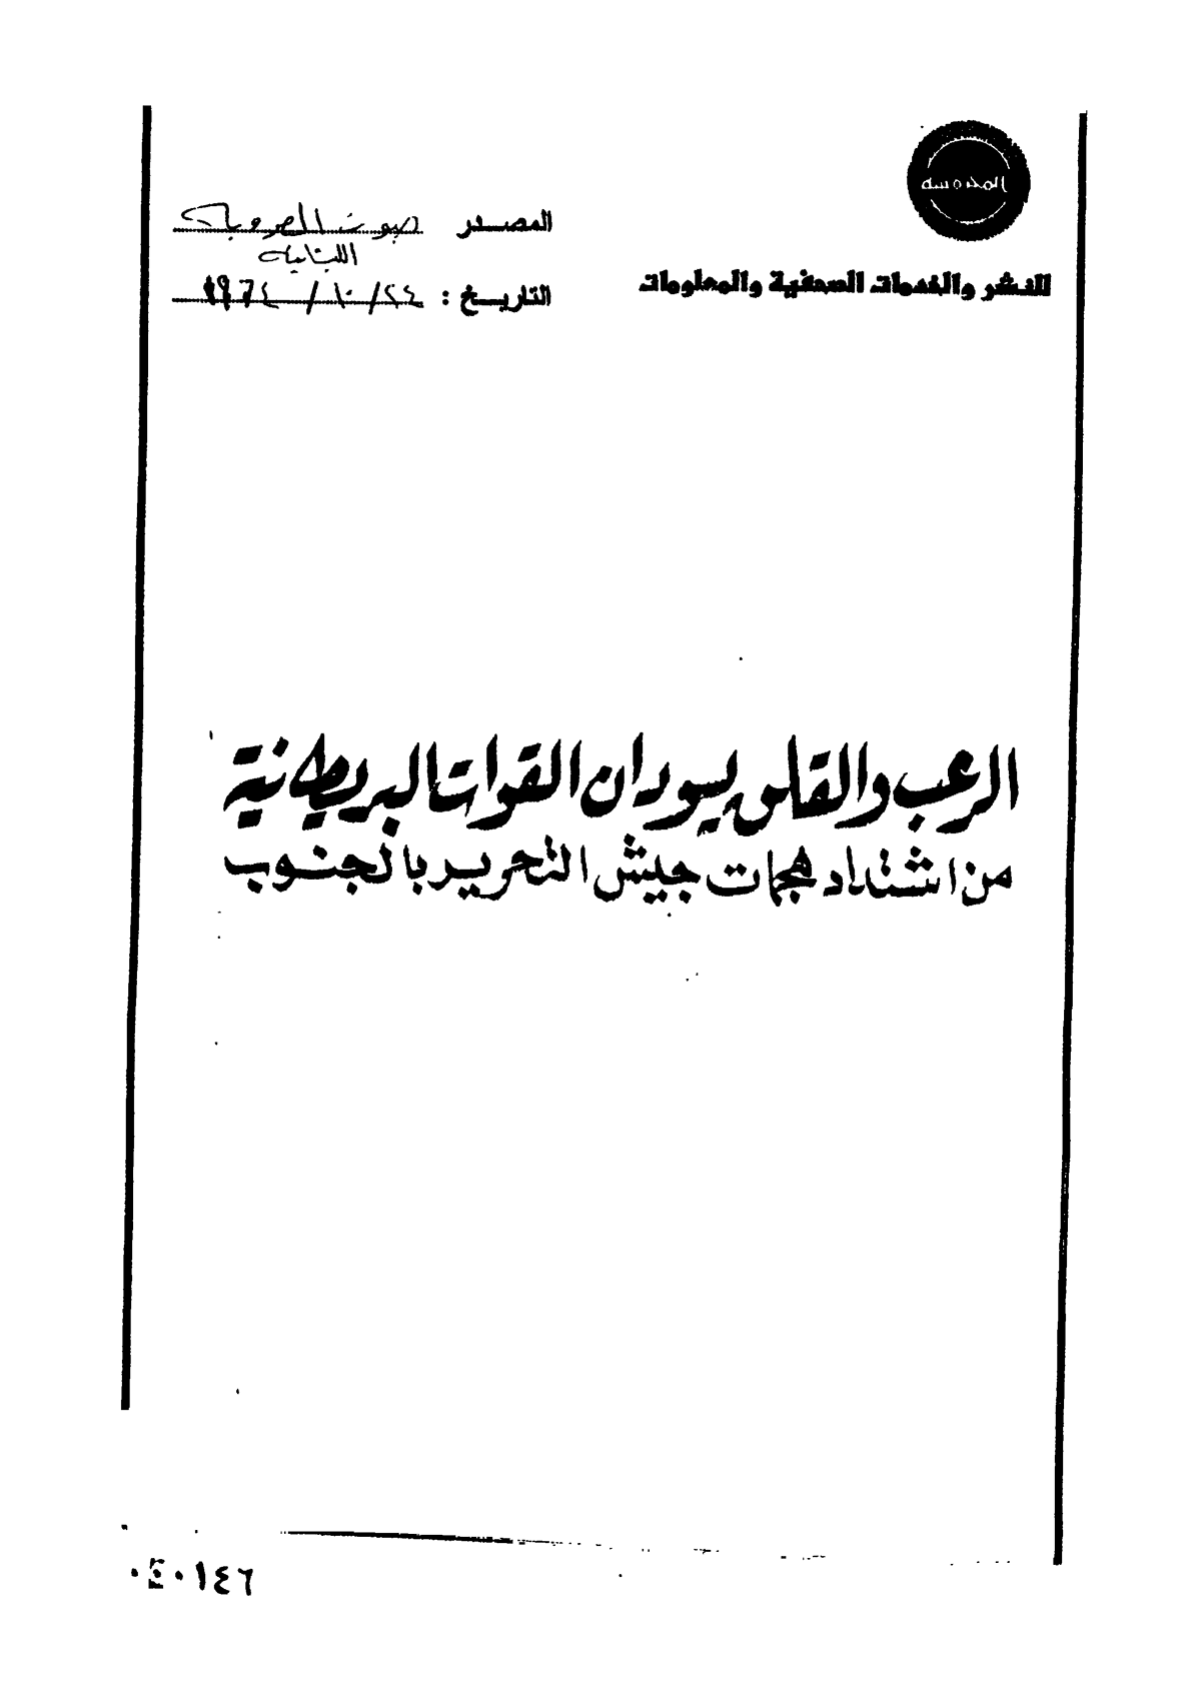 المحروسة
للنشر والخدمات الصحفية والمعلومات
المصدر صوت العروبة
اللبنانية
التاريخ : ٢٤ / ١٠ / ١٩٦٤
الرعب والقلق يسودان القوات البريطانية
من اشتداد هجمات جيش التحرير بالجنوب
٠٤٠١٤٦